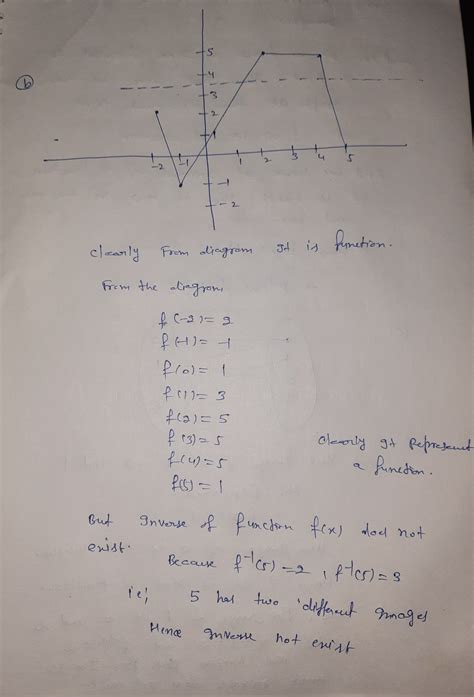 (b)
5
4
3
2
1
-2 -1 1 2 3 4 5
-1
-2
clearly From diagram It is function.
From the diagram,
f(-2) = 2
f(-1) = -1
f(0) = 1
f(1) = 3
f(2) = 5
f(3) = 5
f(4) = 5
f(5) = 1
clearly It represent
a function.
But Inverse of function f(x) does not
exist.
Because f⁻¹(5) = 2 , f⁻¹(5) = 3
ie; 5 has two different Images
Hence Inverse not exist